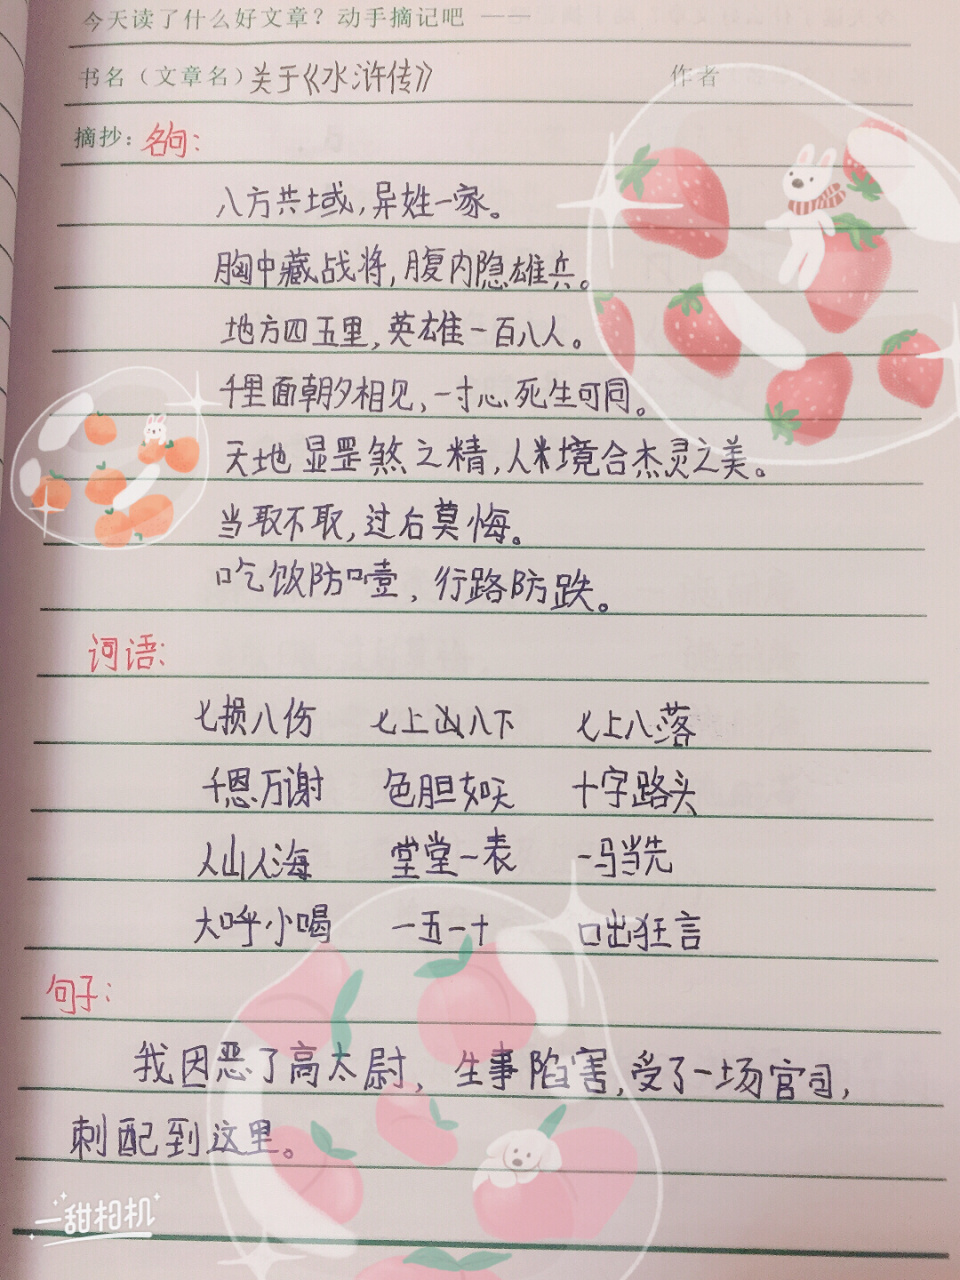 今天读了什么好文章？动手摘记吧 ——
书名（文章名）关于《水浒传》 作者
摘抄：名句：
八方共域，异姓一家。
胸中藏战将，腹内隐雄兵。
地方四五里，英雄一百八人。
千里面朝夕相见，一寸心死生可同。
天地显罡煞之精，人米境合杰灵之美。
当取不取，过后莫悔。
吃饭防噎，行路防跌。
词语：
七损八伤 七上八下 七上八落
千恩万谢 色胆如天 十字路头
人山人海 堂堂一表 一马当先
大呼小喝 一五一十 口出狂言
句子：
我因恶了高太尉，生事陷害，受了一场官司，
刺配到这里。
一甜相机